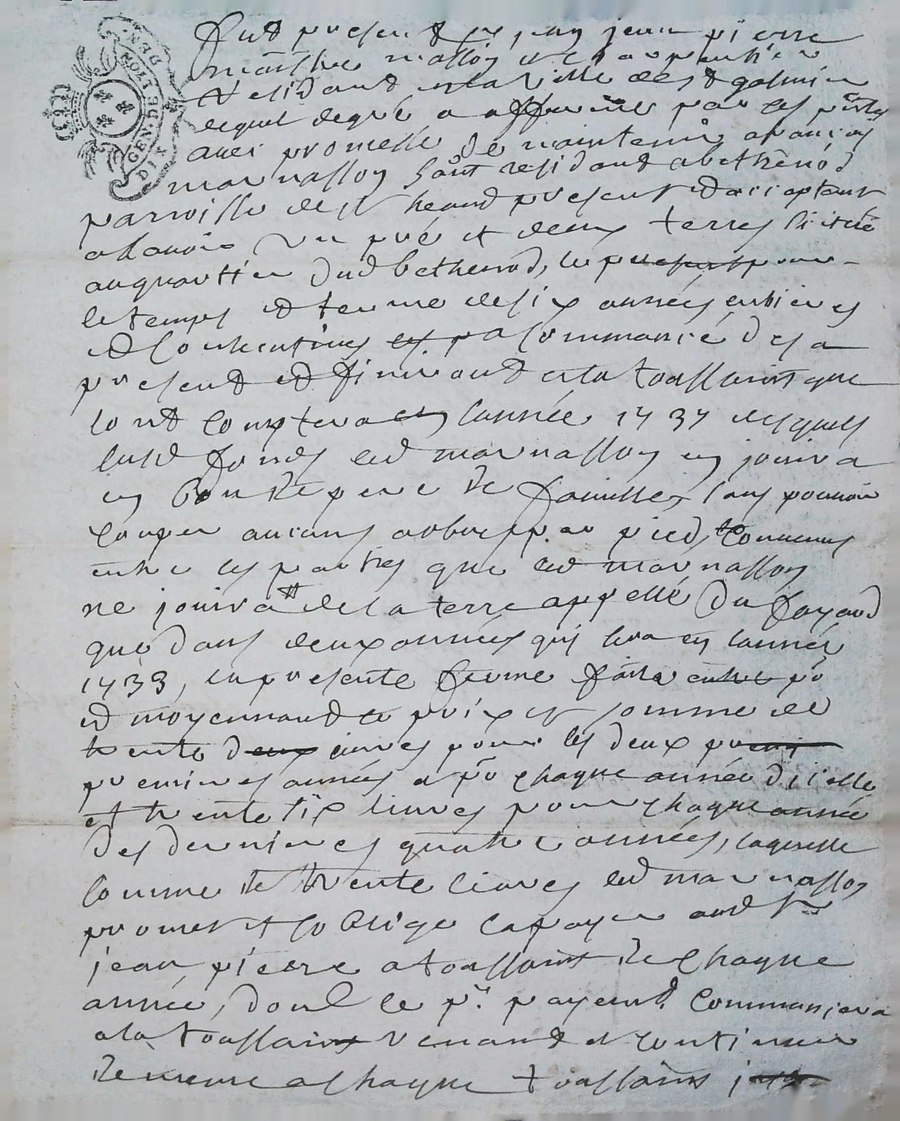 GEN. DE LYON
DIX DEN.
fut present sr jean pierre
résidant en la ville de st galmier
lequel degré a affermé par ces
avec promesse de maintenir a
marnasson résidant a bethenod
parroisse de st heand present et acceptant
a scavoir un pré et deux terres scitué
au quartier dud bethenod, le present pour
le temps et terme de six années entieres
et consecutives et pa commancé des a
present et finiront a la toussaint que
lont comptera en lannée 1737 desquels
susd fonds led marnasson en jouira
en bon pere de famille, sans pouvoir
couper aucuns arbres par pied, convenus
entre les parties que led marnasson
ne jouira de la terre appellé du fayard
que dans deux années qui sera en lannée
1733, la presente ferme faite entre
et moyennant le prix et somme de
trente deux livres pour les deux
premieres années a chaque année dicelle
et trente six livres pour chaque année
des dernieres quatre années, laquelle
somme de trente livres led marnasson
promet et soblige la payer aud sr
jean pierre a toussaint de chaque
année, dont le pr. payement commancera
a la toussaint venant et continuer
de meme a chaque toussaint